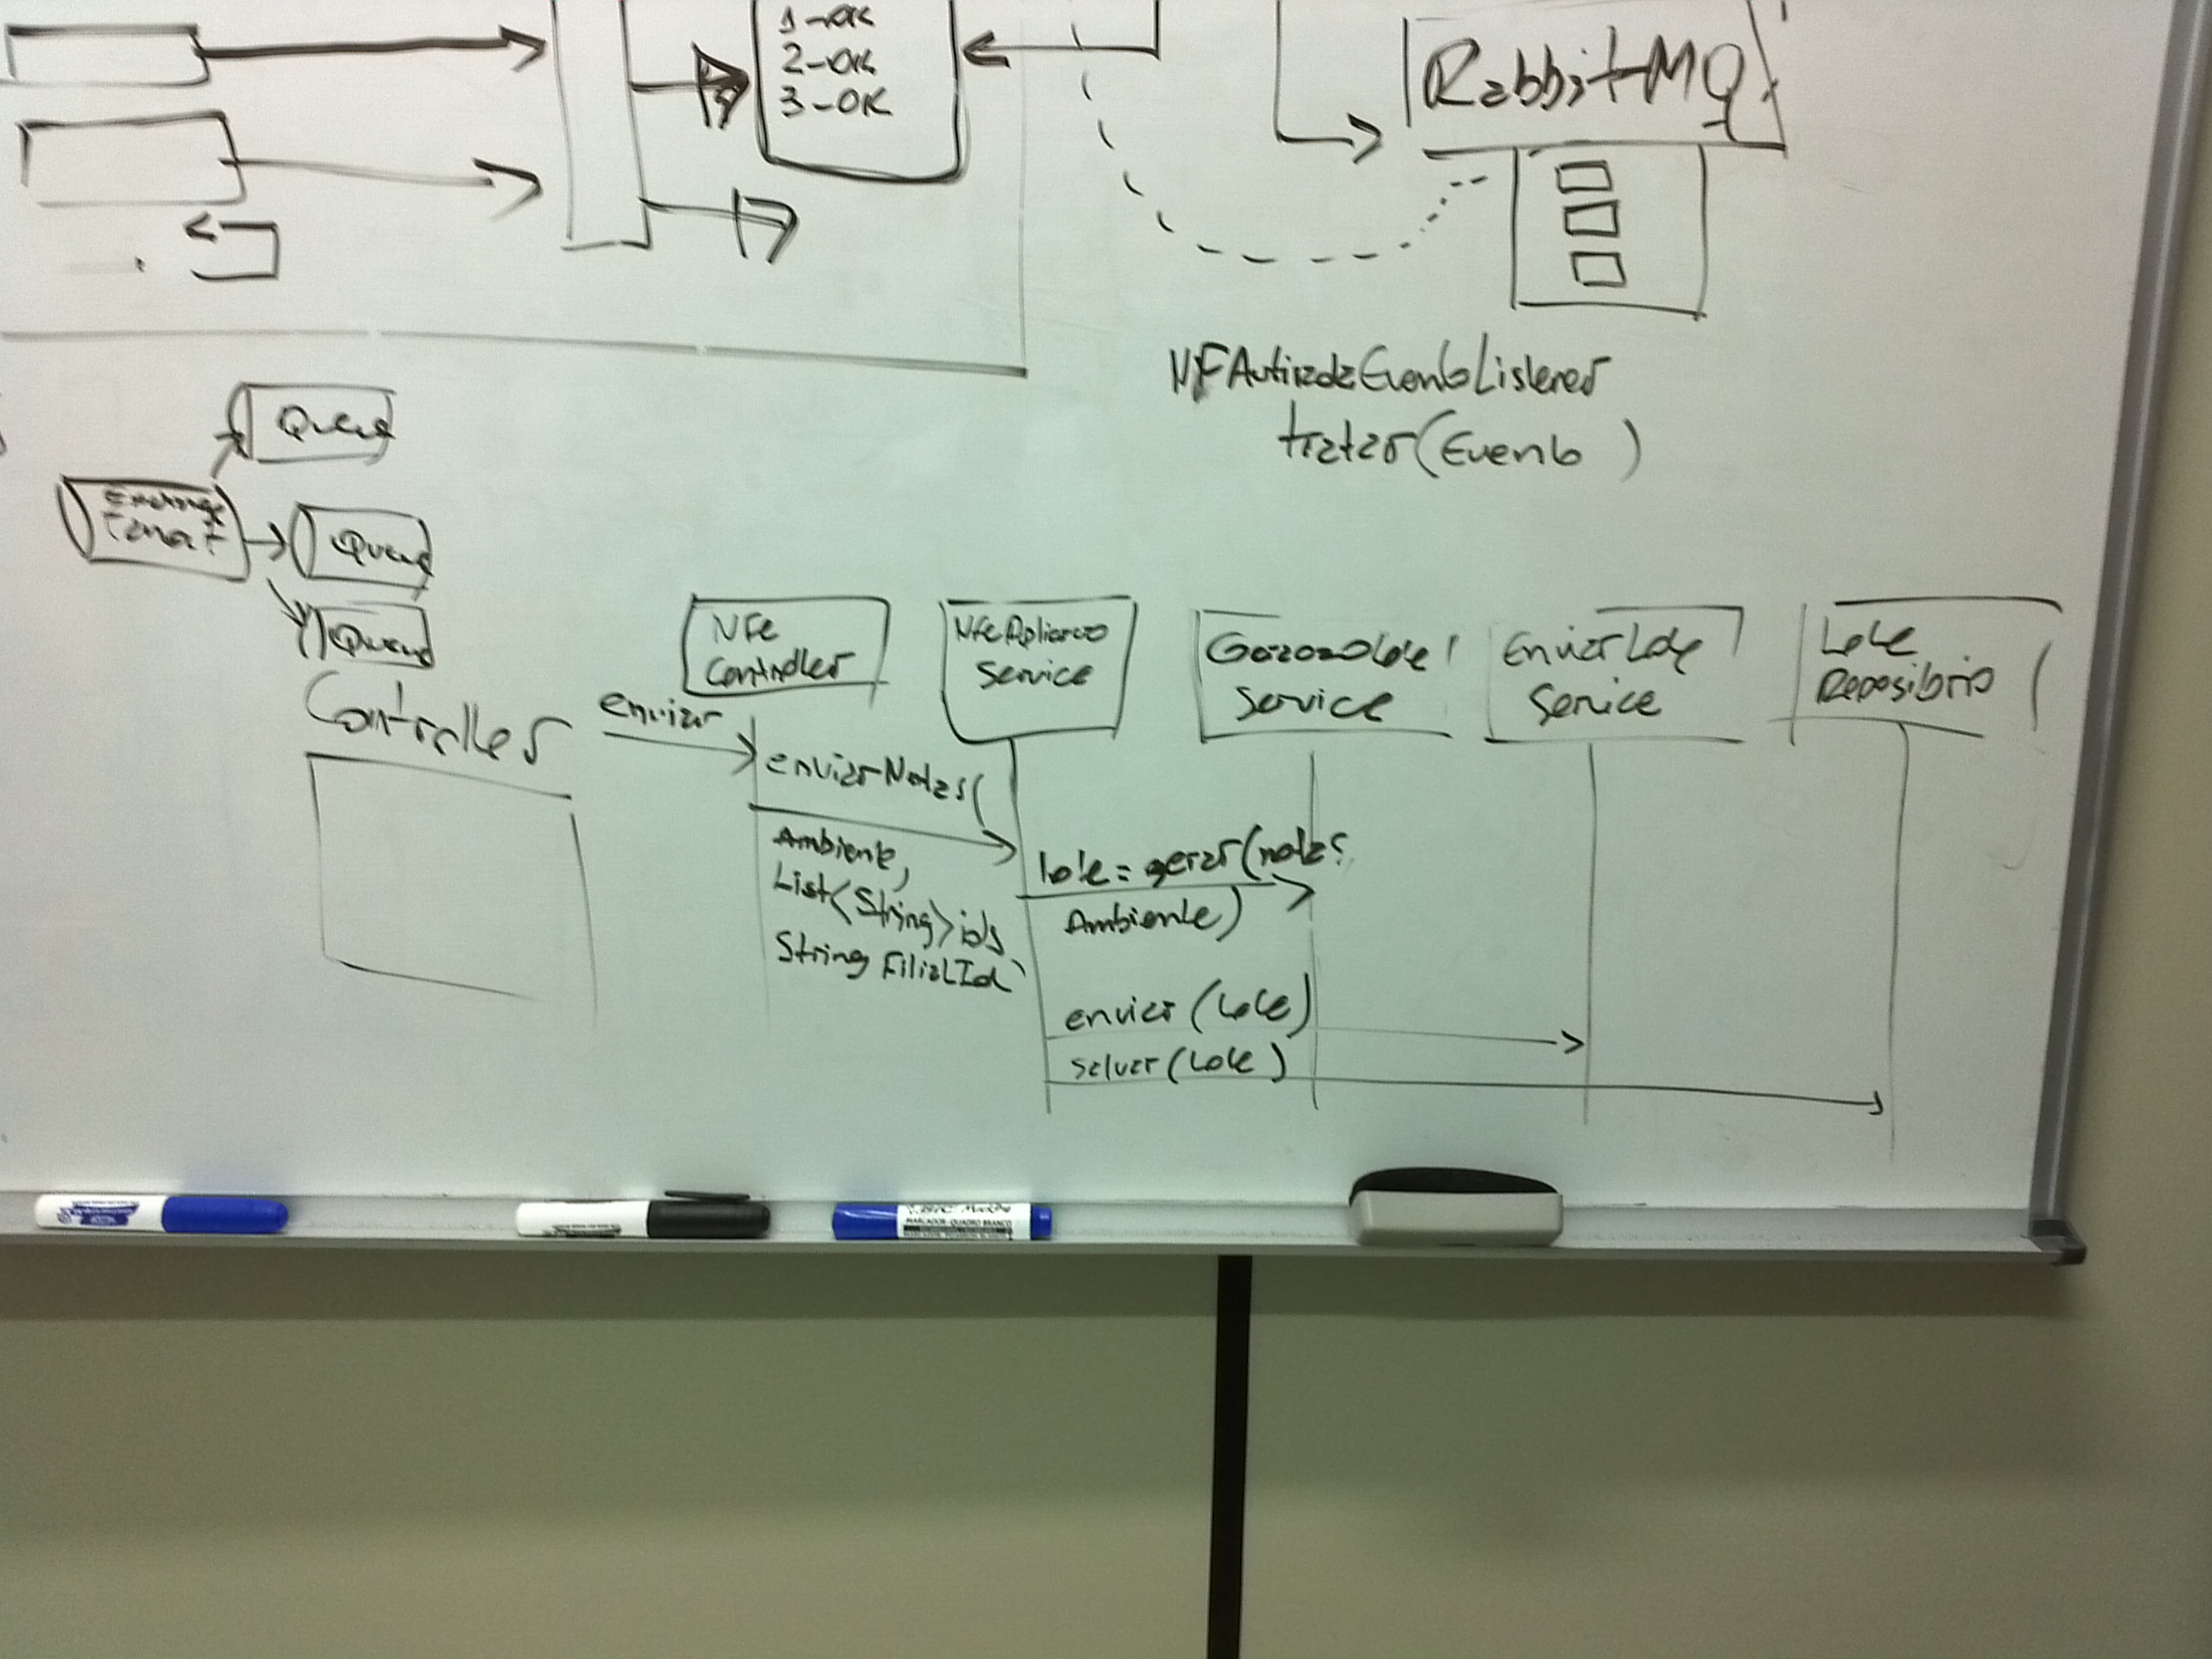 1-OK
2-OK
3-OK
RabbitMQ
NFAutiradaEventoListener
tratar(Evento )
Queue
Exchange
Queue
Queue
Controller
NFe
Controller
Service
Service
EnviarLote
Service
Lote
Repositorio
enviar
enviarNotas(
Ambiente,
List<String> ids
String FilialId
lote = gerar(notas
Ambiente)
enviar (Lote)
salvar (Lote)
MARCADOR-QUADRO BRANCO